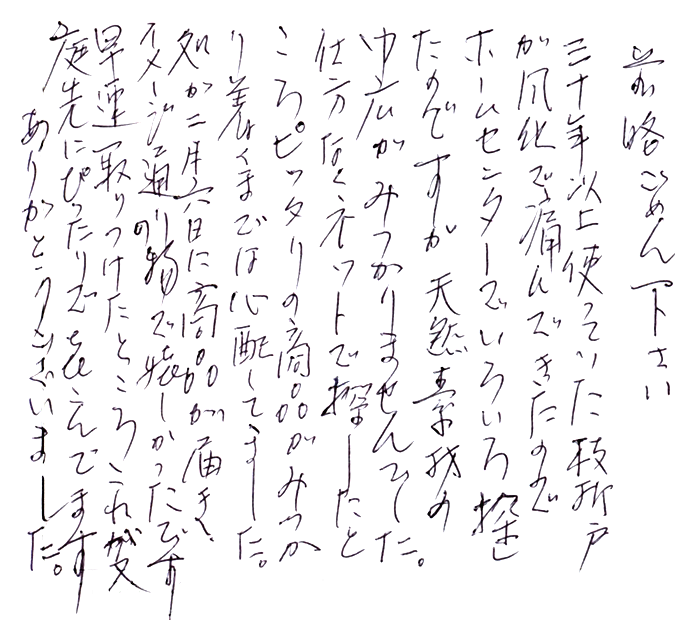 前略ごめん下さい
三十年以上使っていた枝折戸
が風化で痛んできたので
ホームセンターでいろいろ探し
たのですが天然素材の
巾広がみつかりませんでした。
仕方なくネットで探したと
ころピッタリの商品がみつか
り着くまでは心配してました。
処が二月六日に商品が届き、
イメージ通りの物で嬉しかったです
早速取りつけたところこれが又
庭先にぴったりで もえてます
ありがとうございました。